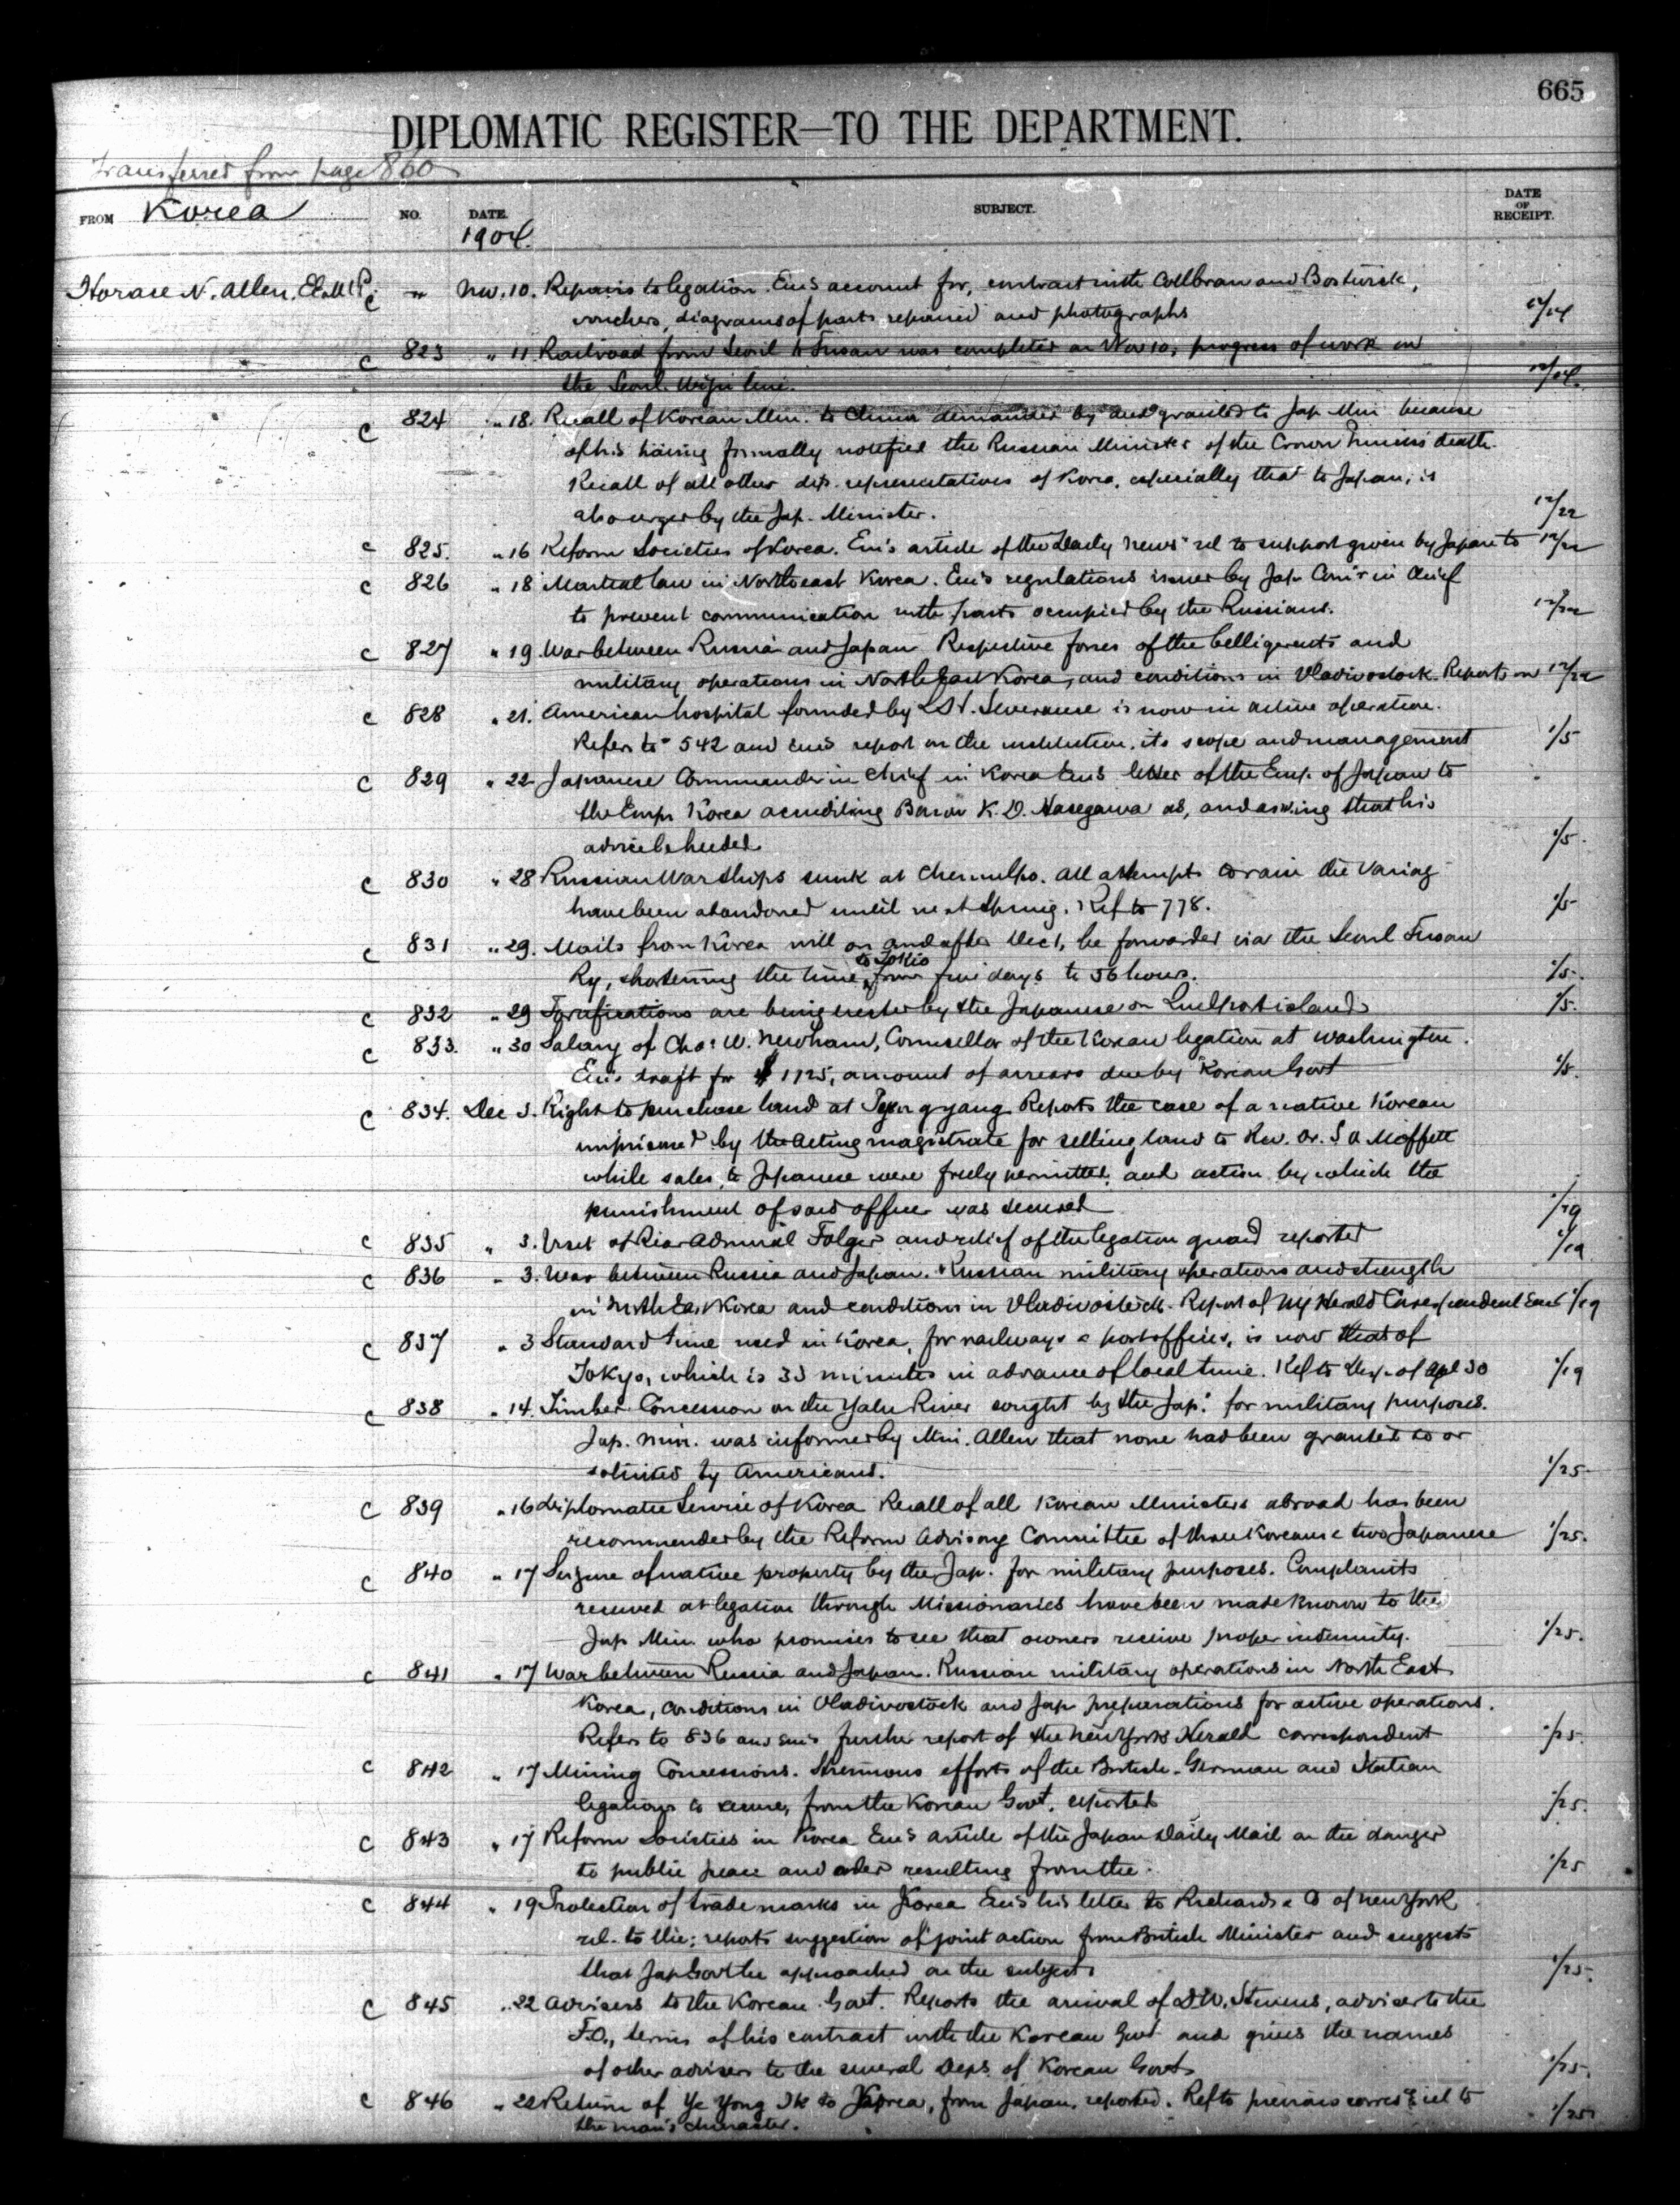 665
DIPLOMATIC REGISTER—TO THE DEPARTMENT.
Transferred from page 860
FROM Korea NO. DATE. SUBJECT. DATE OF RECEIPT.
1904.
Horace N. Allen, E.E. & M.P. c " Nov. 10. Repairs to legation. Encs account for, contract with Collbran and Bostwick,
vouchers, diagrams of parts repaired and photographs 12/14
c 823 " 11. Railroad from Seoul to Fusan was completed on Nov 10, progress of work on
the Seoul. Wiju line. 12/14.
c 824 " 18. Recall of Korean Min. to China demanded by and granted to Jap Min because
of his having formally notified the Russian Minister of the Crown Princess' death.
Recall of all other dip. representatives of Korea, especially that to Japan, is
also urged by the Jap. Minister. 12/22
c 825. " 16 Reform Societies of Korea. Enc's article of the "Daily News" rel to support given by Japan to 12/22
c 826 " 18 Martial law in Northeast Korea. Enc's regulations issued by Jap. Com'r in Chief
to prevent communication with parts occupied by the Russians. 12/22
c 827 " 19. War between Russia and Japan Respective forces of the belligerents and
military operations in North East Korea, and conditions in Vladivostock. Reports on 12/22
c 828 " 21. American hospital founded by L.H. Severance is now in active operation.
Refers to 542 and encs report on the institution, its scope and management 1/5
c 829 " 22. Japanese Commander in Chief in Korea Encs letter of the Emp. of Japan to
the Emp. Korea accrediting Baron K. D. Hasegawa as, and asking that his
advice be heeded. 1/5.
c 830 " 28 Russian Warships sunk at Chemulpo. All attempts to raise the Variag
have been abandoned until next Spring. Ref to 778. 1/5
c 831 " 29. Mails from Korea will on and after Dec 1, be forwarded via the Seoul Fusan
to Tokio
Ry, shortening the time from five days to 56 hours. 1/5.
c 832 " 29 Fortifications are being erected by the Japanese on Quelpart island 1/5.
c 833. " 30 Salary of Chas W. Needham, Counsellor of the Korean legation at Washington.
Encs draft for $1725, amount of arrears due by Korean Govt 1/5.
c 834. Dec 3. Right to purchase land at Pyeng yang Reports the case of a native Korean
imprisoned by the acting magistrate for selling land to Rev. Dr. S A Moffett
while sales to Japanese were freely permitted, and action by which the
punishment of said officer was secured 1/19
c 835 " 3. Visit of Rear Admiral Folger and relief of the legation guard reported 1/19
c 836 " 3. War between Russia and Japan. Russian military operations and strength
in North East Korea and conditions in Vladivostock. Report of NY Herald Correspondent Encs 1/19
c 837 " 3 Standard time used in Korea, for railways & post offices, is now that of
Tokyo, which is 33 minutes in advance of local time. Ref to desp. of Apl 30 1/19
c 838 " 14. Timber Concession on the Yalu River sought by the Jap. for military purposes.
Jap. Min. was informed by Min. Allen that none had been granted to or
solicited by Americans. 1/25
c 839 " 16 Diplomatic Service of Korea Recall of all Korean Ministers abroad has been
recommended by the Reform Advisory Committee of three Koreans & two Japanese 1/25.
c 840 " 17 Seizure of native property by the Jap. for military purposes. Complaints
received at legation through Missionaries have been made known to the
Jap Min. who promises to see that owners receive proper indemnity. 1/25.
c 841 " 17 War between Russia and Japan. Russian military operations in North East
Korea, conditions in Vladivostock and Jap preparations for active operations.
Refers to 836 and encs further report of the New York Herald correspondent 1/25.
c 842 " 17 Mining Concessions. Strenuous efforts of the British, German and Italian
legations to secure, from the Korean Govt. reported 1/25.
c 843 " 17 Reform Societies in Korea Encs article of the Japan Daily Mail on the danger
to public peace and order resulting from the. 1/25
c 844 " 19 Protection of trade marks in Korea Encs his letter to Richards & Co of New York
rel. to the; reports suggestion of joint action from British Minister and suggests
that Jap Govt be approached on the subject. 1/25.
c 845 " 22 Advisers to the Korean Govt. Reports the arrival of D.W. Stevens, adviser to the
F.O., terms of his contract with the Korean Govt and gives the names
of other advisers to the several Deps. of Korean Govt. 1/25.
c 846 " 22 Return of Ye Yong Ik to Korea, from Japan, reported. Ref to previous corres rel to
the man's character. 1/25